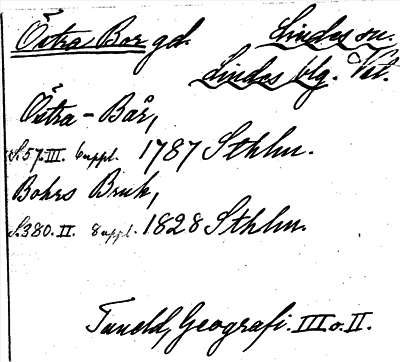 Östra Bor gd. Lindes sn.
Lindes blg. Vst.
Östra-Bår,
S.57.III. 6 uppl. 1787 Sthlm.
Bohrs Bruk,
S.380.II. 8 uppl. 1828 Sthlm.
Tuneld, Geografi. III o. II.